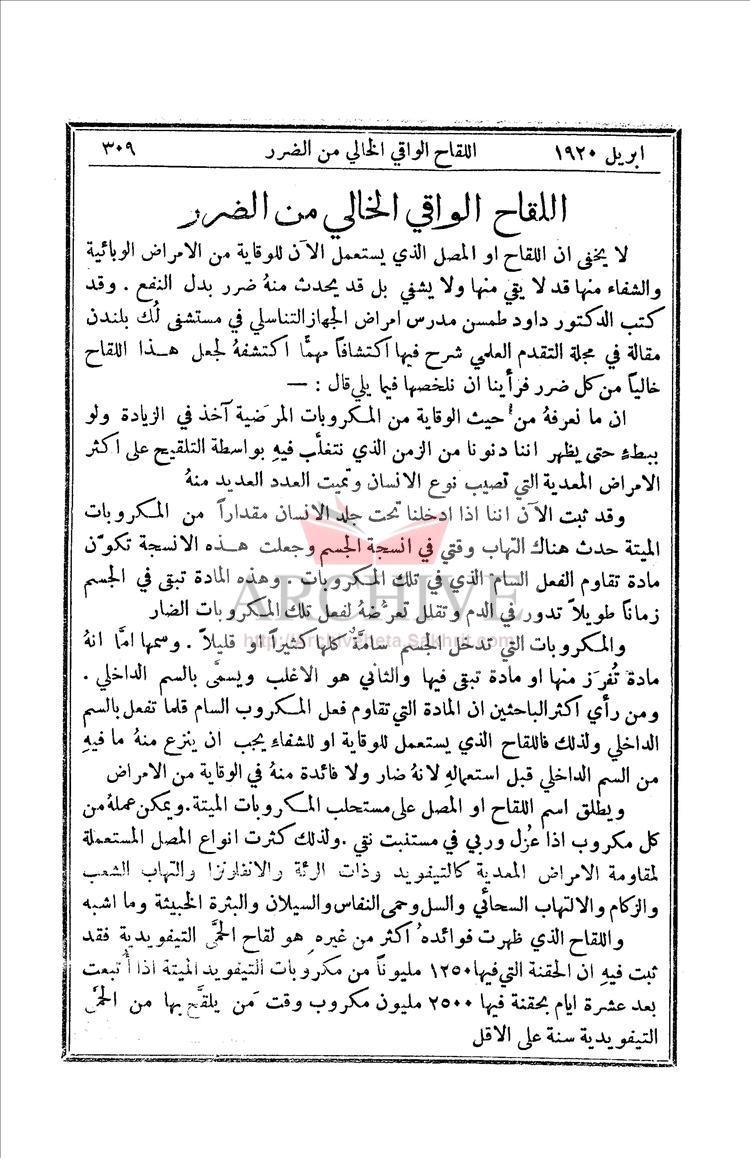 ابريل ١٩٢٠ اللقاح الواقي الخالي من الضرر ٣٠٩
اللقاح الواقي الخالي من الضرر
لا يخفى ان اللقاح او المصل الذي يستعمل الآن للوقاية من الامراض الوبائية
والشفاء منها قد لا يقي منها ولا يشفي بل قد يحدث منهُ ضرر بدل النفع . وقد
كتب الدكتور داود طمسن مدرس امراض الجهاز التناسلي في مستشفى لُك بلندن
مقالة في مجلة التقدم العلمي شرح فيها اكتشافاً مهمًّا اكتشفهُ لجعل هذا اللقاح
خالياً من كل ضرر فرأينا ان نلخصها فيما يلي قال : —
ان ما نعرفهُ من حيث الوقاية من المكروبات المرَضية آخذ في الزيادة ولو
ببطءٍ حتى يظهر اننا دنونا من الزمن الذي نتغلَّب فيهِ بواسطة التلقيح على اكثر
الامراض المعدية التي تصيب نوع الانسان وتميت العدد العديد منهُ
وقد ثبت الآن اننا اذا ادخلنا تحت جلد الانسان مقداراً من المكروبات
الميتة حدث هناك التهاب وقتي في انسجة الجسم وجعلت هذه الانسجة تكوّن
مادة تقاوم الفعل السام الذي في تلك المكروبات . وهذه المادة تبقى في الجسم
زماناً طويلاً تدور في الدم وتقلل تعرُّضهُ لفعل تلك المكروبات الضار
والمكروبات التي تدخل الجسم سامَّة كلها كثيراً او قليلاً . وسمها امَّا انهُ
مادة تُفرَز منها او مادة تبقى فيها والثاني هو الاغلب ويسمَّى بالسم الداخلي .
ومن رأي اكثر الباحثين ان المادة التي تقاوم فعل المكروب السام قلما تفعل بالسم
الداخلي ولذلك فاللقاح الذي يستعمل للوقاية او للشفاءِ يجب ان ينزع منهُ ما فيهِ
من السم الداخلي قبل استعمالهِ لانهُ ضار ولا فائدة منهُ في الوقاية من الامراض
ويطلق اسم اللقاح او المصل على مستحلب المكروبات الميتة . ويمكن عملهُ من
كل مكروب اذا عُزل وربي في مستنبت نقي . ولذلك كثرت انواع المصل المستعملة
لمقاومة الامراض المعدية كالتيفويد وذات الرئة والانفلونزا والتهاب الشعب
والزكام والالتهاب السحائي والسل وحمى النفاس والسيلان والبثرة الخبيثة وما اشبه
واللقاح الذي ظهرت فوائدهُ اكثر من غيرهِ هو لقاح الحمَّى التيفويدية فقد
ثبت فيهِ ان الحقنة التي فيها ١٢٥٠ مليوناً من مكروبات التيفويد الميتة اذا أُتبعت
بعد عشرة ايام بحقنة فيها ٢٥٠٠ مليون مكروب وقت مَن يلقَّح بها من الحمَّى
التيفويدية سنة على الاقل
ARCHIVE
http://Archivebeta.Sakhrit.com